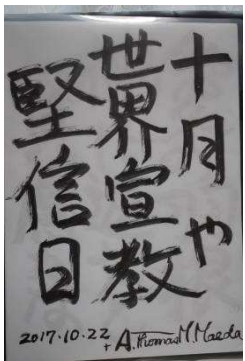 十月や
世界宣教
堅信日
2017.10.22 + A.Thomas M.Maeda